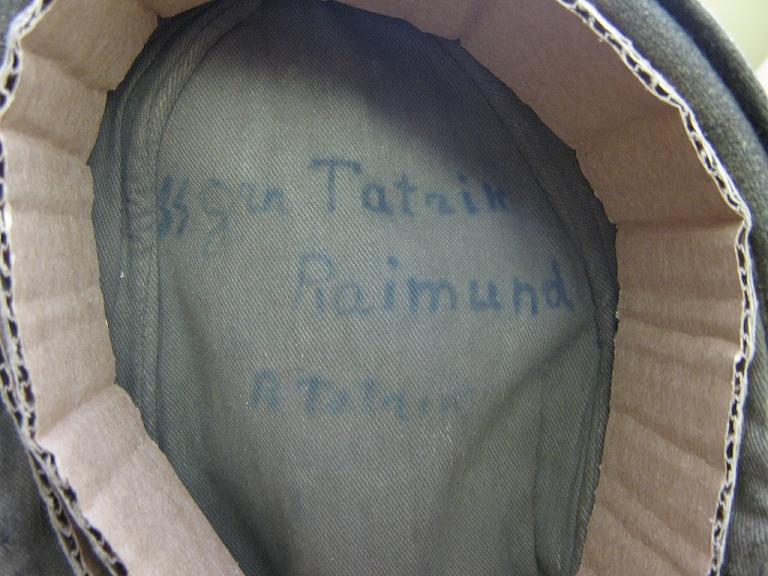 SS Grn Tatrik
Raimund
R Tatrik